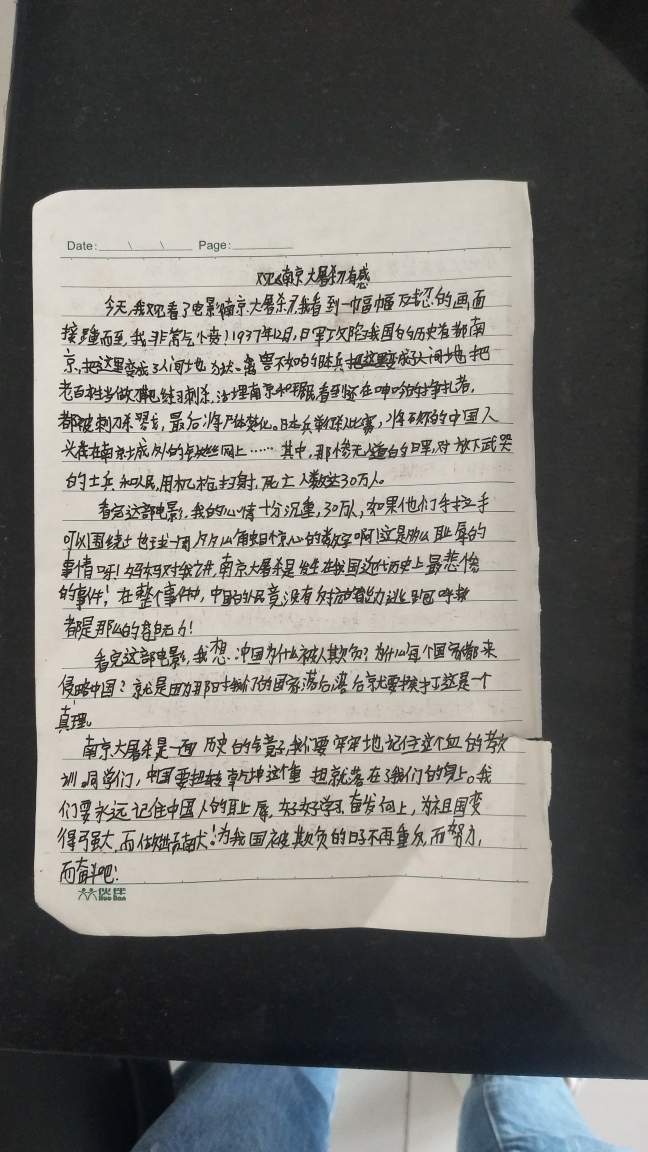 Date: \ \ Page:
观《南京大屠杀》有感
今天,我观看了电影《南京大屠杀》,我看到一幅幅 的画面
接踵而至,我非常气愤!1937年12月,日军攻陷我国的历史名都南
京,把这里变成了人间地狱。 把
老百姓当做 练习刺杀,活埋南京 看到 在呻吟 挣扎者,
都被刺刀杀 ,最后将尸体焚化。日本兵 比赛,将 的中国人
头 在南京城外的铁丝网上……其中,那惨无人道的日军,对放下武器
的士兵和人民,用机枪扫射,死亡人数达30万人。
看完这部电影,我的心情十分沉重,30万人,如果他们手拉手
可以围绕 地球一周 多么触目惊心的数字啊!这是那么耻辱的
事情呀!妈妈对我讲,南京大屠杀是发生在我国近代历史上最悲惨
的事件!在整个事件中,中国的人民竟没有 能力 呼救
都是那么的 无力!
看完这部电影,我想:中国为什么被人欺负?为什么每个国家都来
侵略中国?就是因为那时我们的国家落后,落后就要挨打这是一个
真理。
南京大屠杀是一面历史的镜子,我们要牢牢地记住这个血的教
训。同学们,中国要扭转乾坤这个重担就落在了我们的身上。我
们要永远记住中国人的耻辱,好好学习,奋发向上,为祖国变
得强大,而 !为我国被欺负的日子不再重 ,而努力,
而奋斗吧!
伙伴
Huo Ban